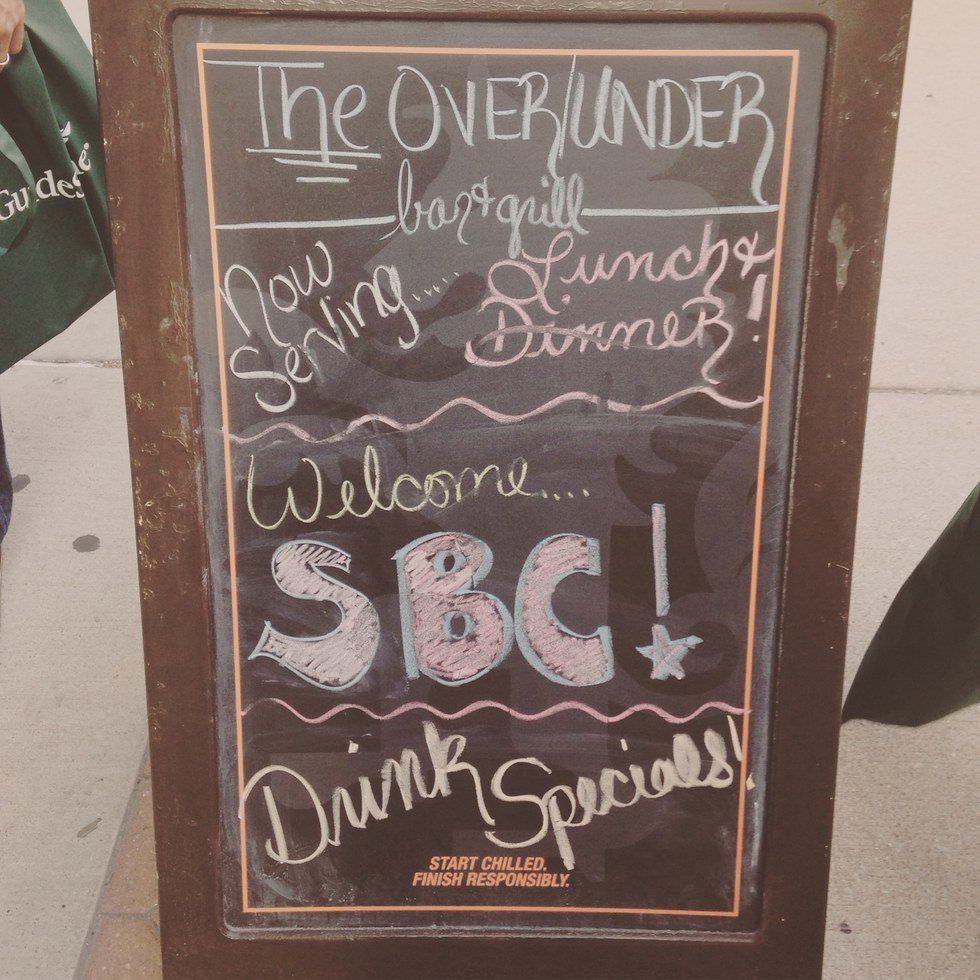 The OVER/UNDER
bar & grill
Now Serving.....
Lunch &
Dinner!
Welcome....
SBC!
Drink Specials!
START CHILLED.
FINISH RESPONSIBLY.